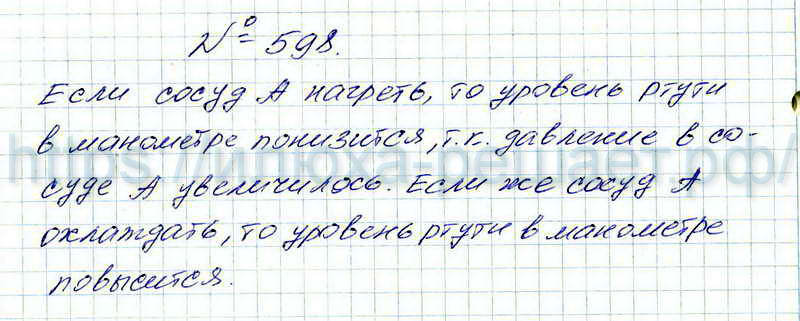 № 598.
Если сосуд А нагреть, то уровень ртути
в манометре понизится, т.к. давление в со-
суде А увеличилось. Если же сосуд А
охлаждать, то уровень ртути в манометре
повысится.